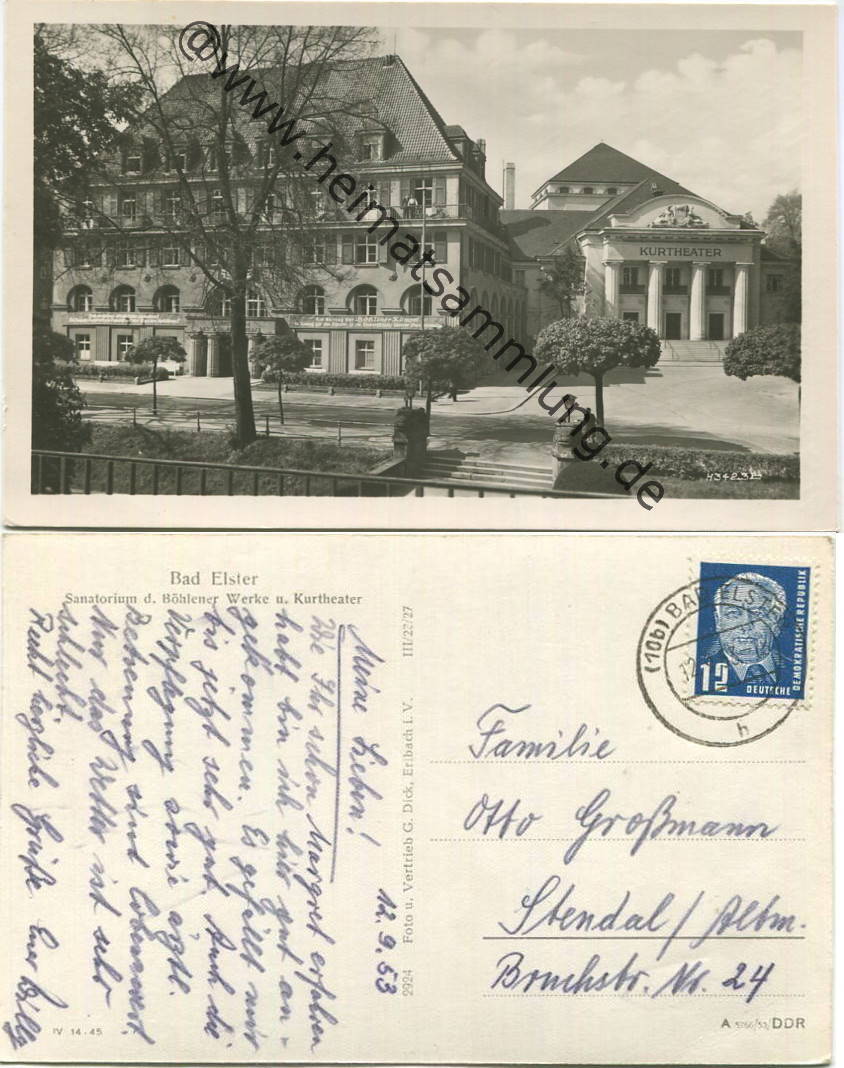 @www.heimatsammlung.de
KURTHEATER
H3423
Bad Elster
Sanatorium d. Böhlener Werke u. Kurtheater
12.9.53
Meine Lieben!
Wie Ihr schon Margret erfahren
habt bin ich hier gut an-
gekommen. Es gefällt mir
bis jetzt sehr gut. Auch die
Verpflegung sowie ärztl.
Betreuung sind lobenswert
Nur das Wetter ist sehr
schlecht.
Recht herzliche Grüße Euer Willy
IV 14-45
2924 Foto u. Vertrieb G. Dick, Erlbach i. V. III/22/27
(10b) BAD ELSTER
h
12
DEUTSCHE
DEMOKRATISCHE REPUBLIK
Familie
Otto Großmann
Stendal/Altm.
Bruchstr. Nr. 24
A 5266/53/DDR